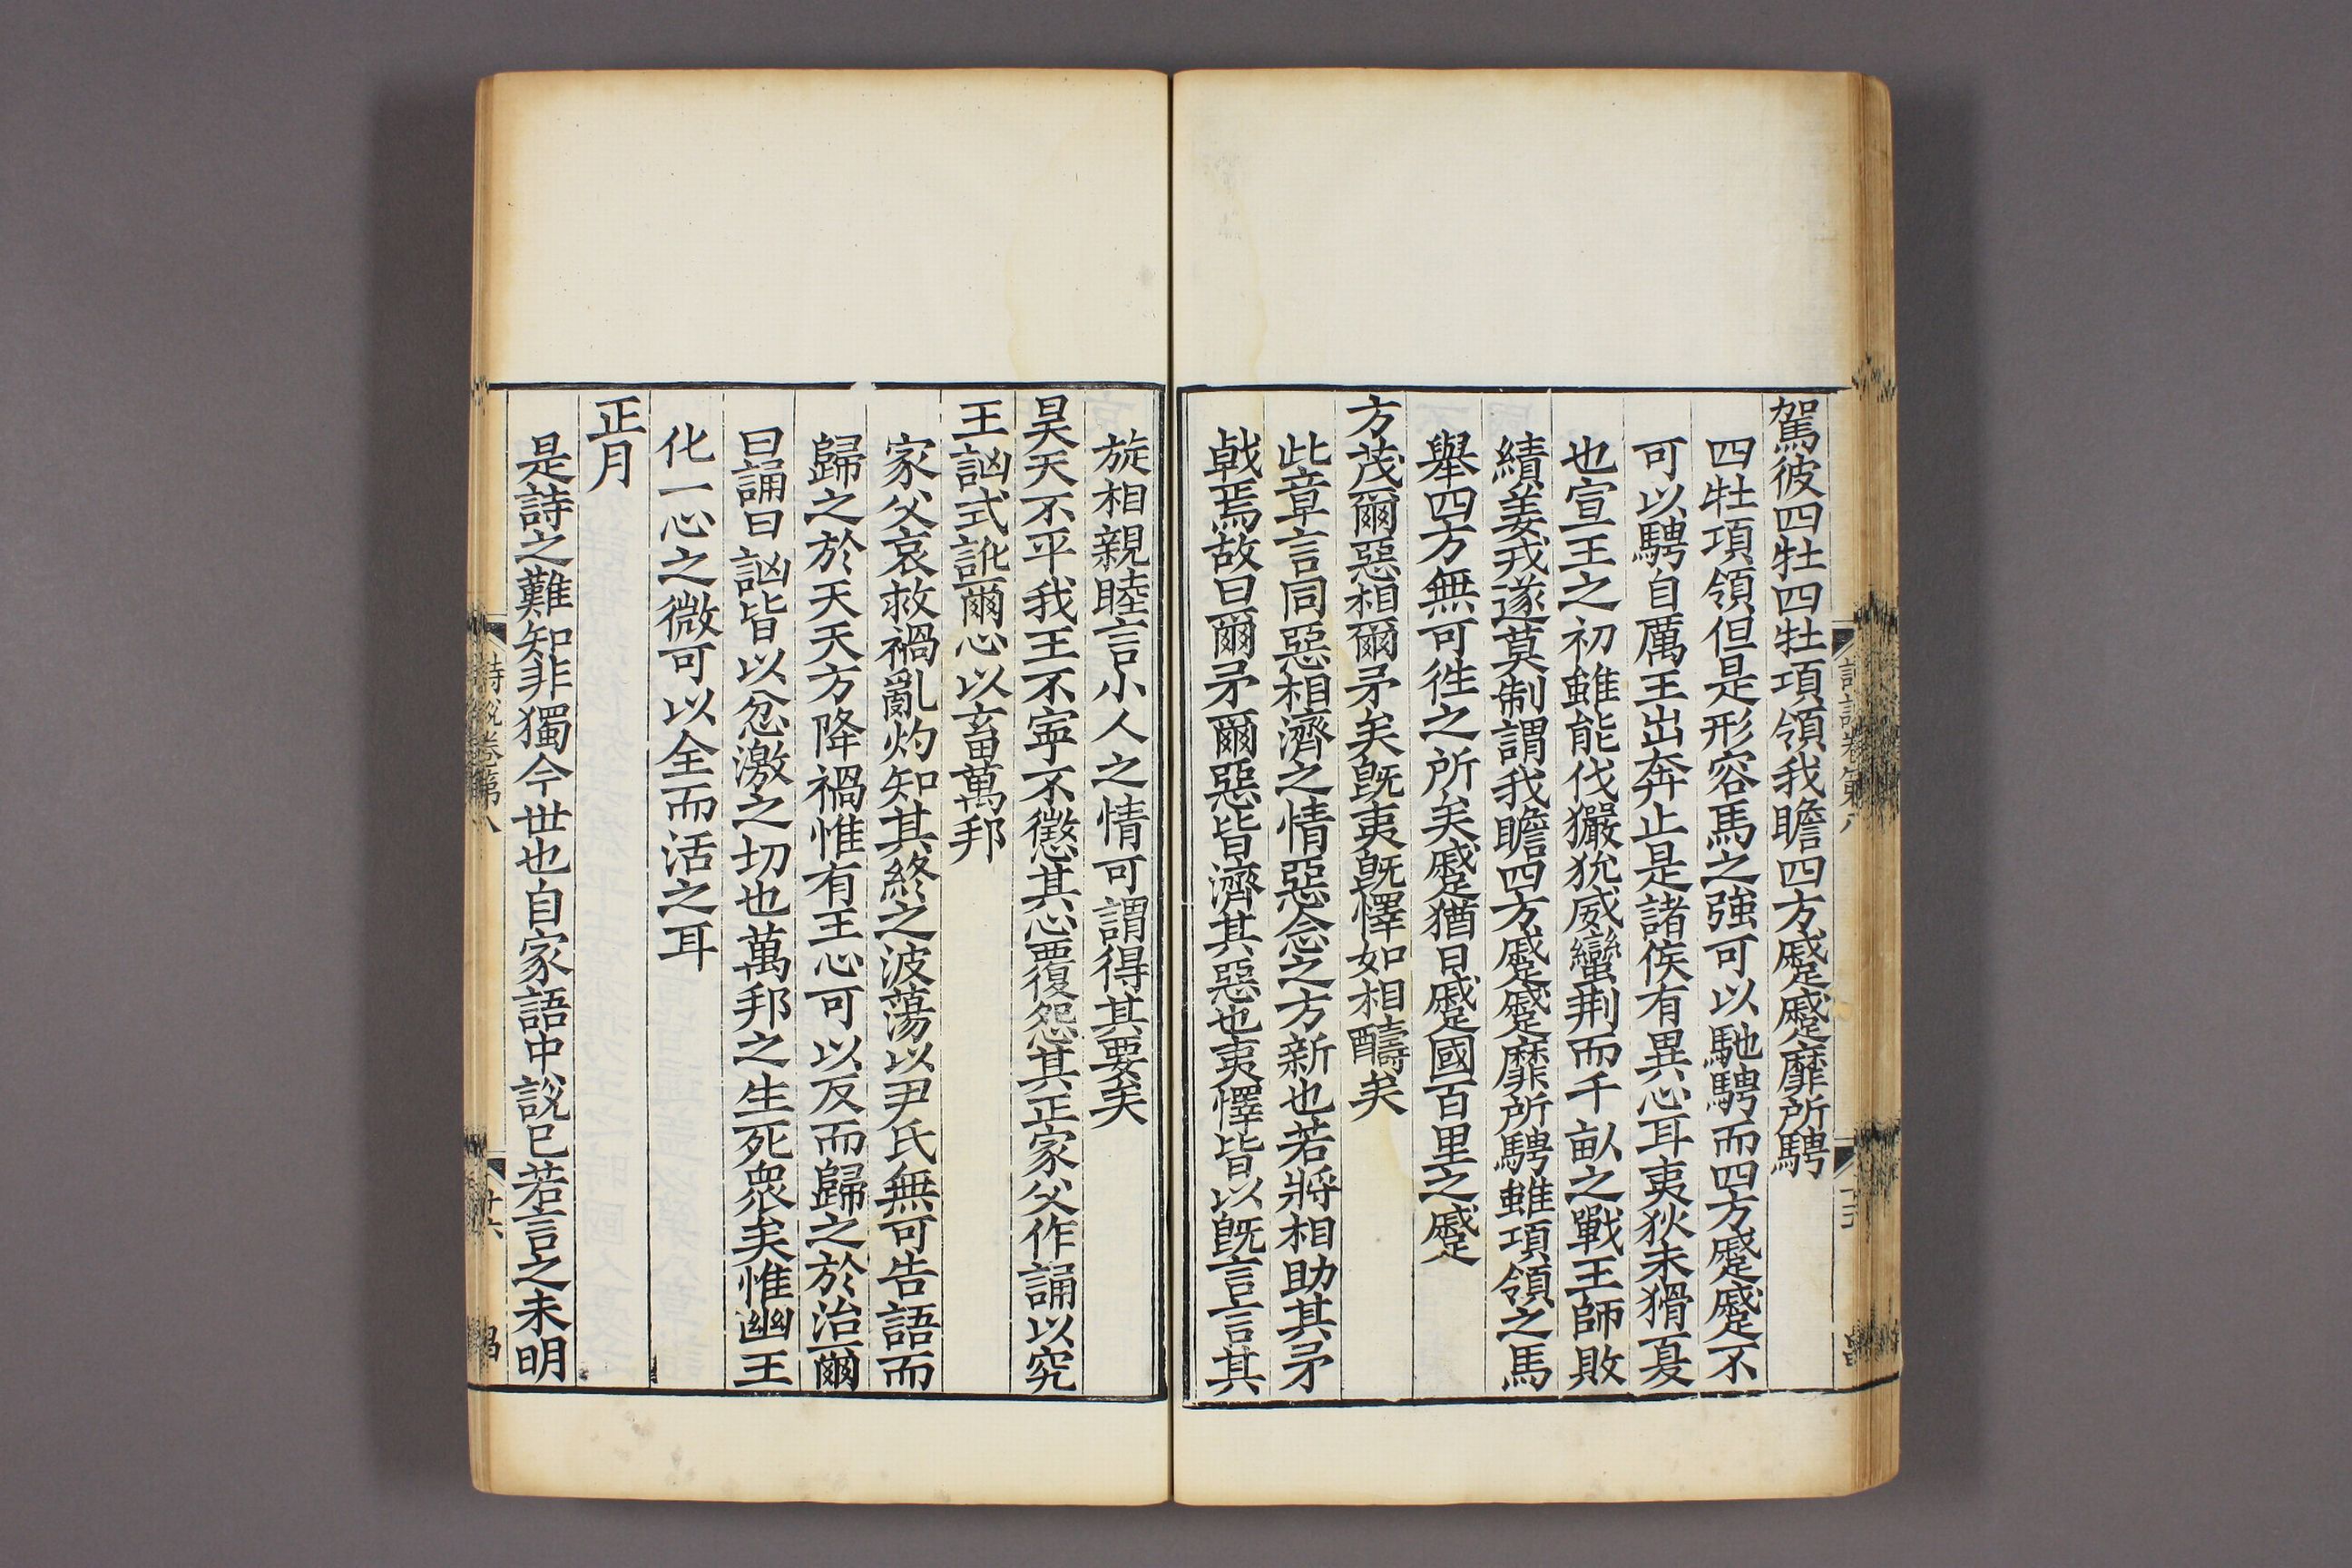 駕彼四牡四牡項領我瞻四方蹙蹙靡所騁
四牡項領但是形容馬之強可以馳騁而四方蹙蹙不
可以騁自厲王出奔止是諸侯有異心耳夷狄未猾夏
也宣王之初雖能伐玁狁威蠻荆而千畝之戰王師敗
績姜戎遂莫制謂我瞻四方蹙蹙靡所騁雖項領之馬
舉四方無可徃之所矣蹙猶日蹙國百里之蹙
方茂爾惡相爾矛矣旣夷旣懌如相醻矣
此章言同惡相濟之情惡念之方新也若將相助其矛
戟焉故曰爾矛爾惡皆濟其惡也夷懌皆以旣言言其
旋相親睦言小人之情可謂得其要矣
昊天不平我王不寧不懲其心覆怨其正家父作誦以究
王訩式訛爾心以畜萬邦
家父哀救禍亂灼知其終之波蕩以尹氏無可告語而
歸之於天天方降禍惟有王心可以反而歸之於治爾
曰誦曰訩皆以忿激之切也萬邦之生死衆矣惟幽王
化一心之微可以全而活之耳
正月
是詩之難知非獨今世也自家語中說已若言之未明
詩說卷第八
廿六
昌